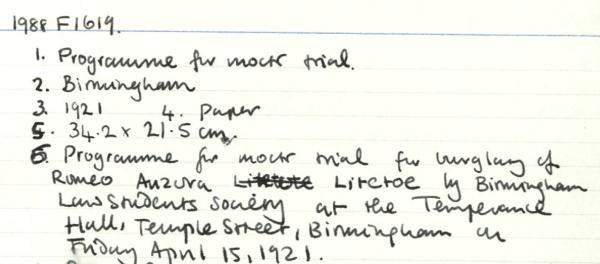 1988 F1619.
1. Programme for mock trial.
2. Birmingham
3. 1921 4. Paper
5. 34.2 x 21.5 cm.
6. Programme for mock trial for burglary of
Romeo Anzora Literoe by Birmingham
Law Students Society at the Temperance
Hall, Temple Street, Birmingham on
Friday April 15, 1921.